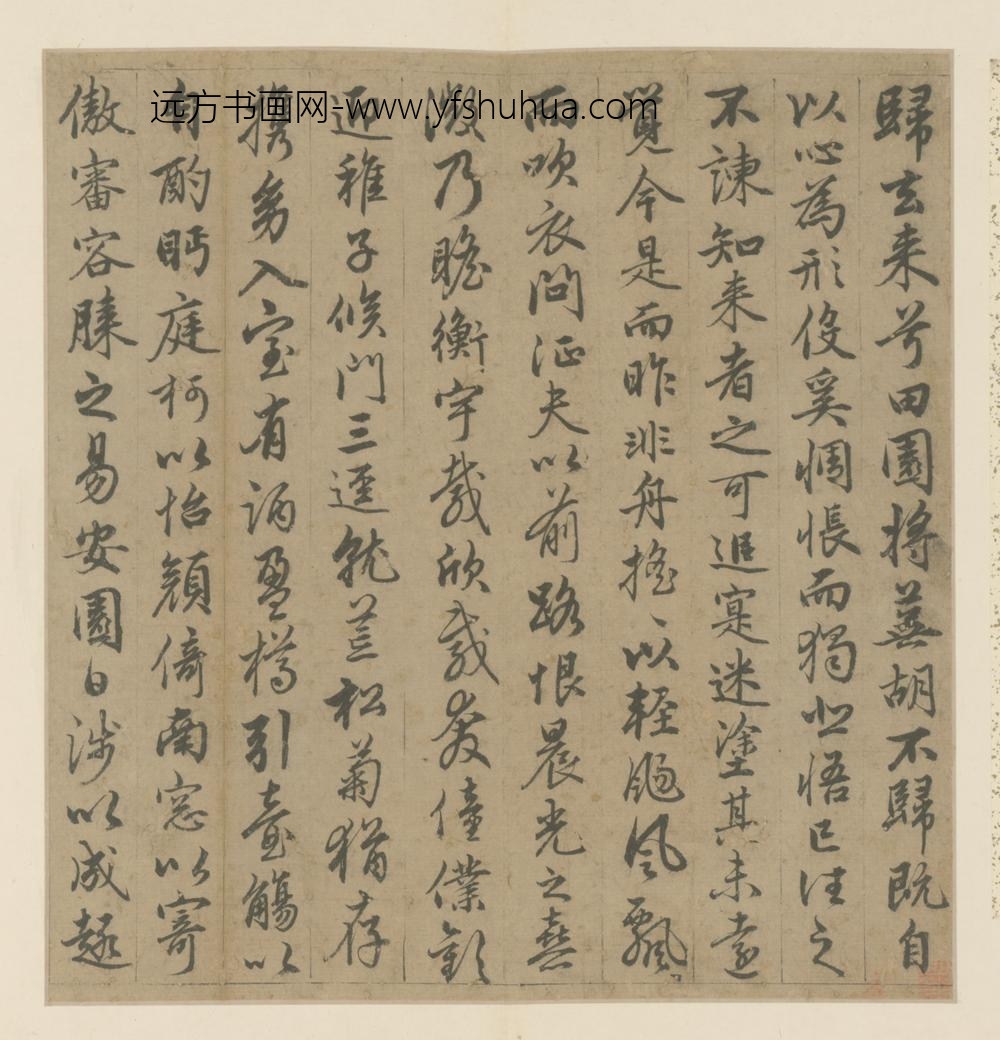 远方书画网-www.yfshuhua.com
歸去来兮田園将蕪胡不歸既自
以心為形役奚惆悵而獨悲悟已往之
不諫知来者之可追寔迷塗其未遠
覺今是而昨非舟摇〻以輕颺風飄〻
而吹衣問征夫以前路恨晨光之熹
微乃瞻衡宇載欣載奔僮僕歡
迎稚子候門三逕就荒松菊猶存
携幼入室有酒盈樽引壺觴以
自酌眄庭柯以怡顔倚南窓以寄
傲審容膝之易安園日涉以成趣